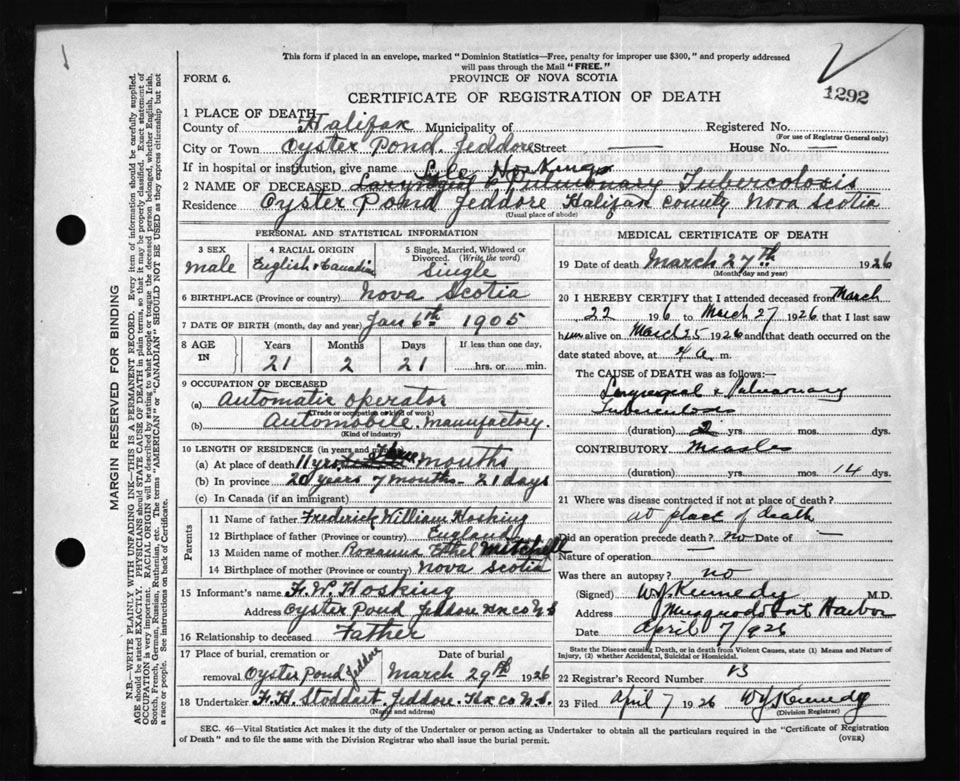 This form if placed in an envelope, marked "Dominion Statistics—Free, penalty for improper use $300," and properly addressed
will pass through the Mail "FREE."
FORM 6.
PROVINCE OF NOVA SCOTIA
1292
CERTIFICATE OF REGISTRATION OF DEATH
1 PLACE OF DEATH
County of Halifax Municipality of Registered No.
(For use of Registrar General only)
City or Town Oyster Pond. Jeddore Street — House No. —
If in hospital or institution, give name Lyle Hosking
2 NAME OF DECEASED Laryngeal & Pulmonary Tubercolosis
Residence Oyster Pond Jeddore Halifax County Nova Scotia
(Usual place of abode)
PERSONAL AND STATISTICAL INFORMATION
3 SEX
male
4 RACIAL ORIGIN
English & Canadian
5 Single, Married, Widowed or
Divorced. (Write the word)
Single
6 BIRTHPLACE (Province or country) Nova Scotia
7 DATE OF BIRTH (month, day and year) Jan 6th 1905
8 AGE
IN
Years Months Days If less than one day,
21 2 21 hrs. or min.
9 OCCUPATION OF DECEASED
(a) Automatic operator
(Trade or occupation or kind of work)
(b) Automobile. manufactory.
(Kind of industry)
10 LENGTH OF RESIDENCE (in years and months)
(a) At place of death 11 yrs Three months
(b) In province 20 years 7 months - 21 days
(c) In Canada (if an immigrant)
Parents
11 Name of father Frederick William Hosking
12 Birthplace of father (Province or country) England
13 Maiden name of mother Roxanna Ethel Mitchell
14 Birthplace of mother (Province or country) Nova Scotia
15 Informant's name F. W. Hosking
Address Oyster Pond Jeddore Hx co N.S
16 Relationship to deceased Father
17 Place of burial, cremation or Date of burial
removal Oyster Pond Jeddore March 29th 1926
18 Undertaker F. H. Stoddart. Jeddore. Hx co N.S.
(Name and address)
MEDICAL CERTIFICATE OF DEATH
19 Date of death March 27th 1926
(Month, day and year)
20 I HEREBY CERTIFY that I attended deceased from March
22 1926 to March 27 1926 that I last saw
him alive on March 25 1926 and that death occurred on the
date stated above, at 4 a. m.
The CAUSE of DEATH was as follows:—
Laryngeal & Pulmonary
Tuberculosis
(duration) 2 yrs. mos. dys.
CONTRIBUTORY Measles
(duration) yrs. mos. 14 dys.
21 Where was disease contracted if not at place of death?
at place of death
Did an operation precede death? no Date of —
Nature of operation —
Was there an autopsy? no
(Signed) W J Kennedy M.D.
Address Musquodoboit Harbor
Date April 7/926
State the Disease causing Death, or in death from Violent Causes, state (1) Means and Nature of
Injury, (2) whether Accidental, Suicidal or Homicidal.
22 Registrar's Record Number 13
23 Filed April 7 1926 W J Kennedy
(Division Registrar)
SEC. 46—Vital Statistics Act makes it the duty of the Undertaker or person acting as Undertaker to obtain all the particulars required in the "Certificate of Registration
of Death" and to file the same with the Division Registrar who shall issue the burial permit.
(OVER)
MARGIN RESERVED FOR BINDING
N.B.—WRITE PLAINLY WITH UNFADING INK—THIS IS A PERMANENT RECORD. Every item of information should be carefully supplied.
AGE should be stated EXACTLY. PHYSICIANS should STATE CAUSE OF DEATH in plain terms, so that it may be properly classified. Exact statement of
OCCUPATION is very important. RACIAL ORIGIN will be described by stating to what people or tongue the deceased person belonged, whether English, Irish,
Scotch, French, German, Russian, Ruthenian, etc. The terms "AMERICAN" or "CANADIAN" SHOULD NOT BE USED as they express citizenship but not
a race or people. See instructions on back of Certificate.